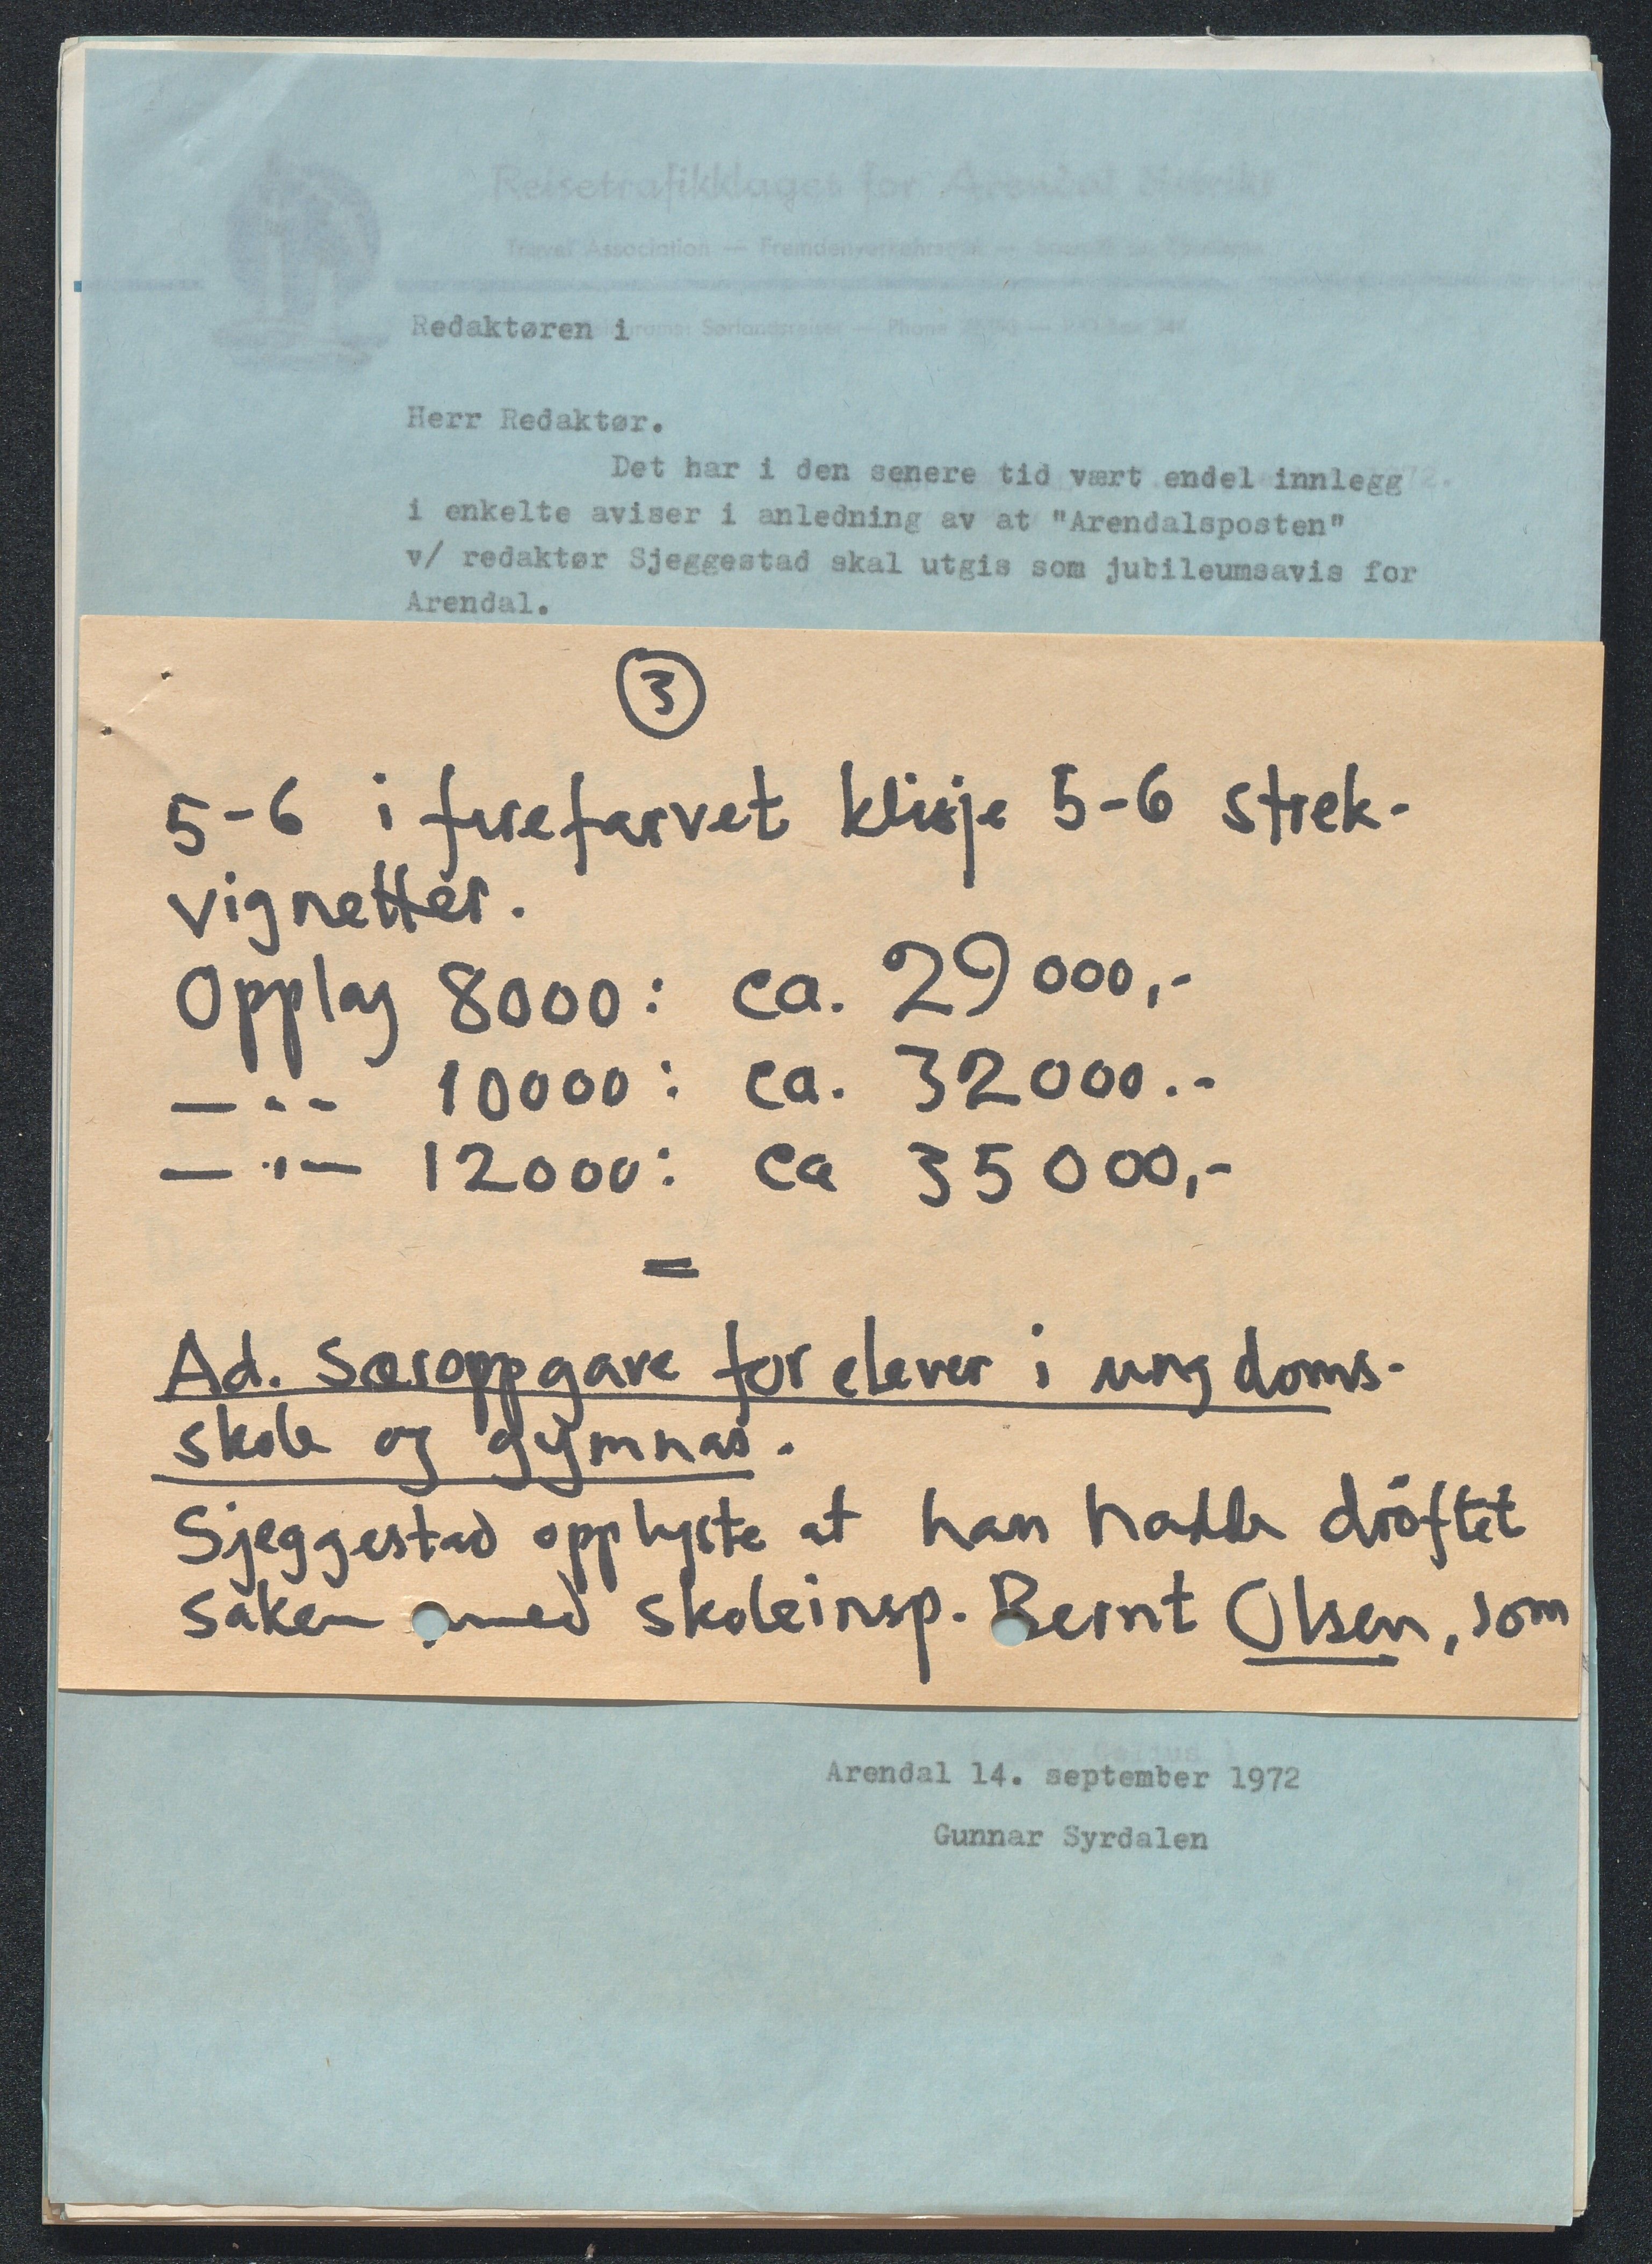 Reisetrafikklaget for Arendal Distrikt
Travel Association — Fremdenverkehrsamt —
Sørlandsreiser — Phone
Redaktøren i
Herr Redaktør.
Det har i den senere tid vært endel innlegg
i enkelte aviser i anledning av at "Arendalsposten"
v/ redaktør Sjeggestad skal utgis som jubileumsavis for
Arendal.
3
5-6 i firefarvet klisje 5-6 strek-
vignetter.
Opplag 8000: ca. 29 000,-
— " - 10000: ca. 32000.-
— " — 12000: ca 35 000,-
=
Ad. Særoppgave for elever i ungdoms-
skole og gymnas.
Sjeggestad opplyste at han hadde drøftet
saken med skoleinsp. Bernt Olsen, som
Arendal 14. september 1972
Gunnar Syrdalen